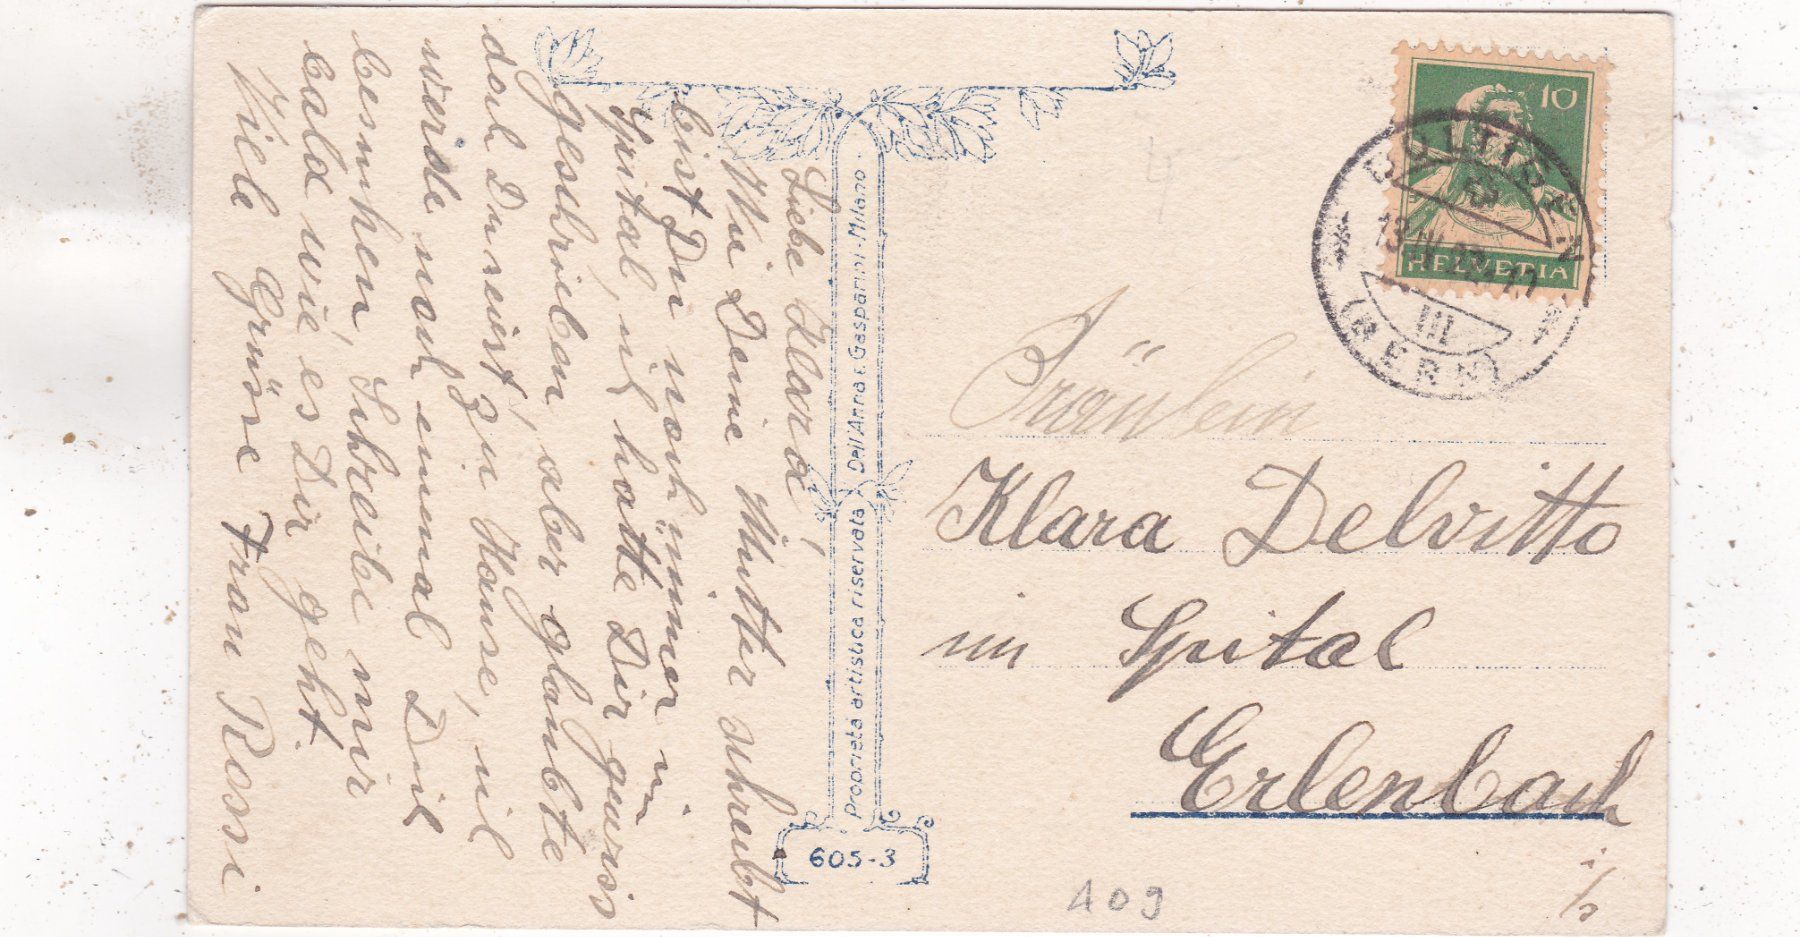 Liebe Klara,
Wie Deine Mutter schreibt
bist Du noch immer im
Spital, ich hätte Dir gewiss
geschrieben, aber glaubte
doch Du seist zu Hause, ich
werde noch einmal Dich
besuchen, Schreibe mir
bald wie es Dir geht.
Viele Grüsse Frau Rossi
Proprietà artistica riservata Dell'Anna e Gasparini - Milano
605-3
10
HELVETIA
BÜTIGEN
III
(BERN)
Fräulein
Klara Delvitto
im Spital
Erlenbach
i/S
409